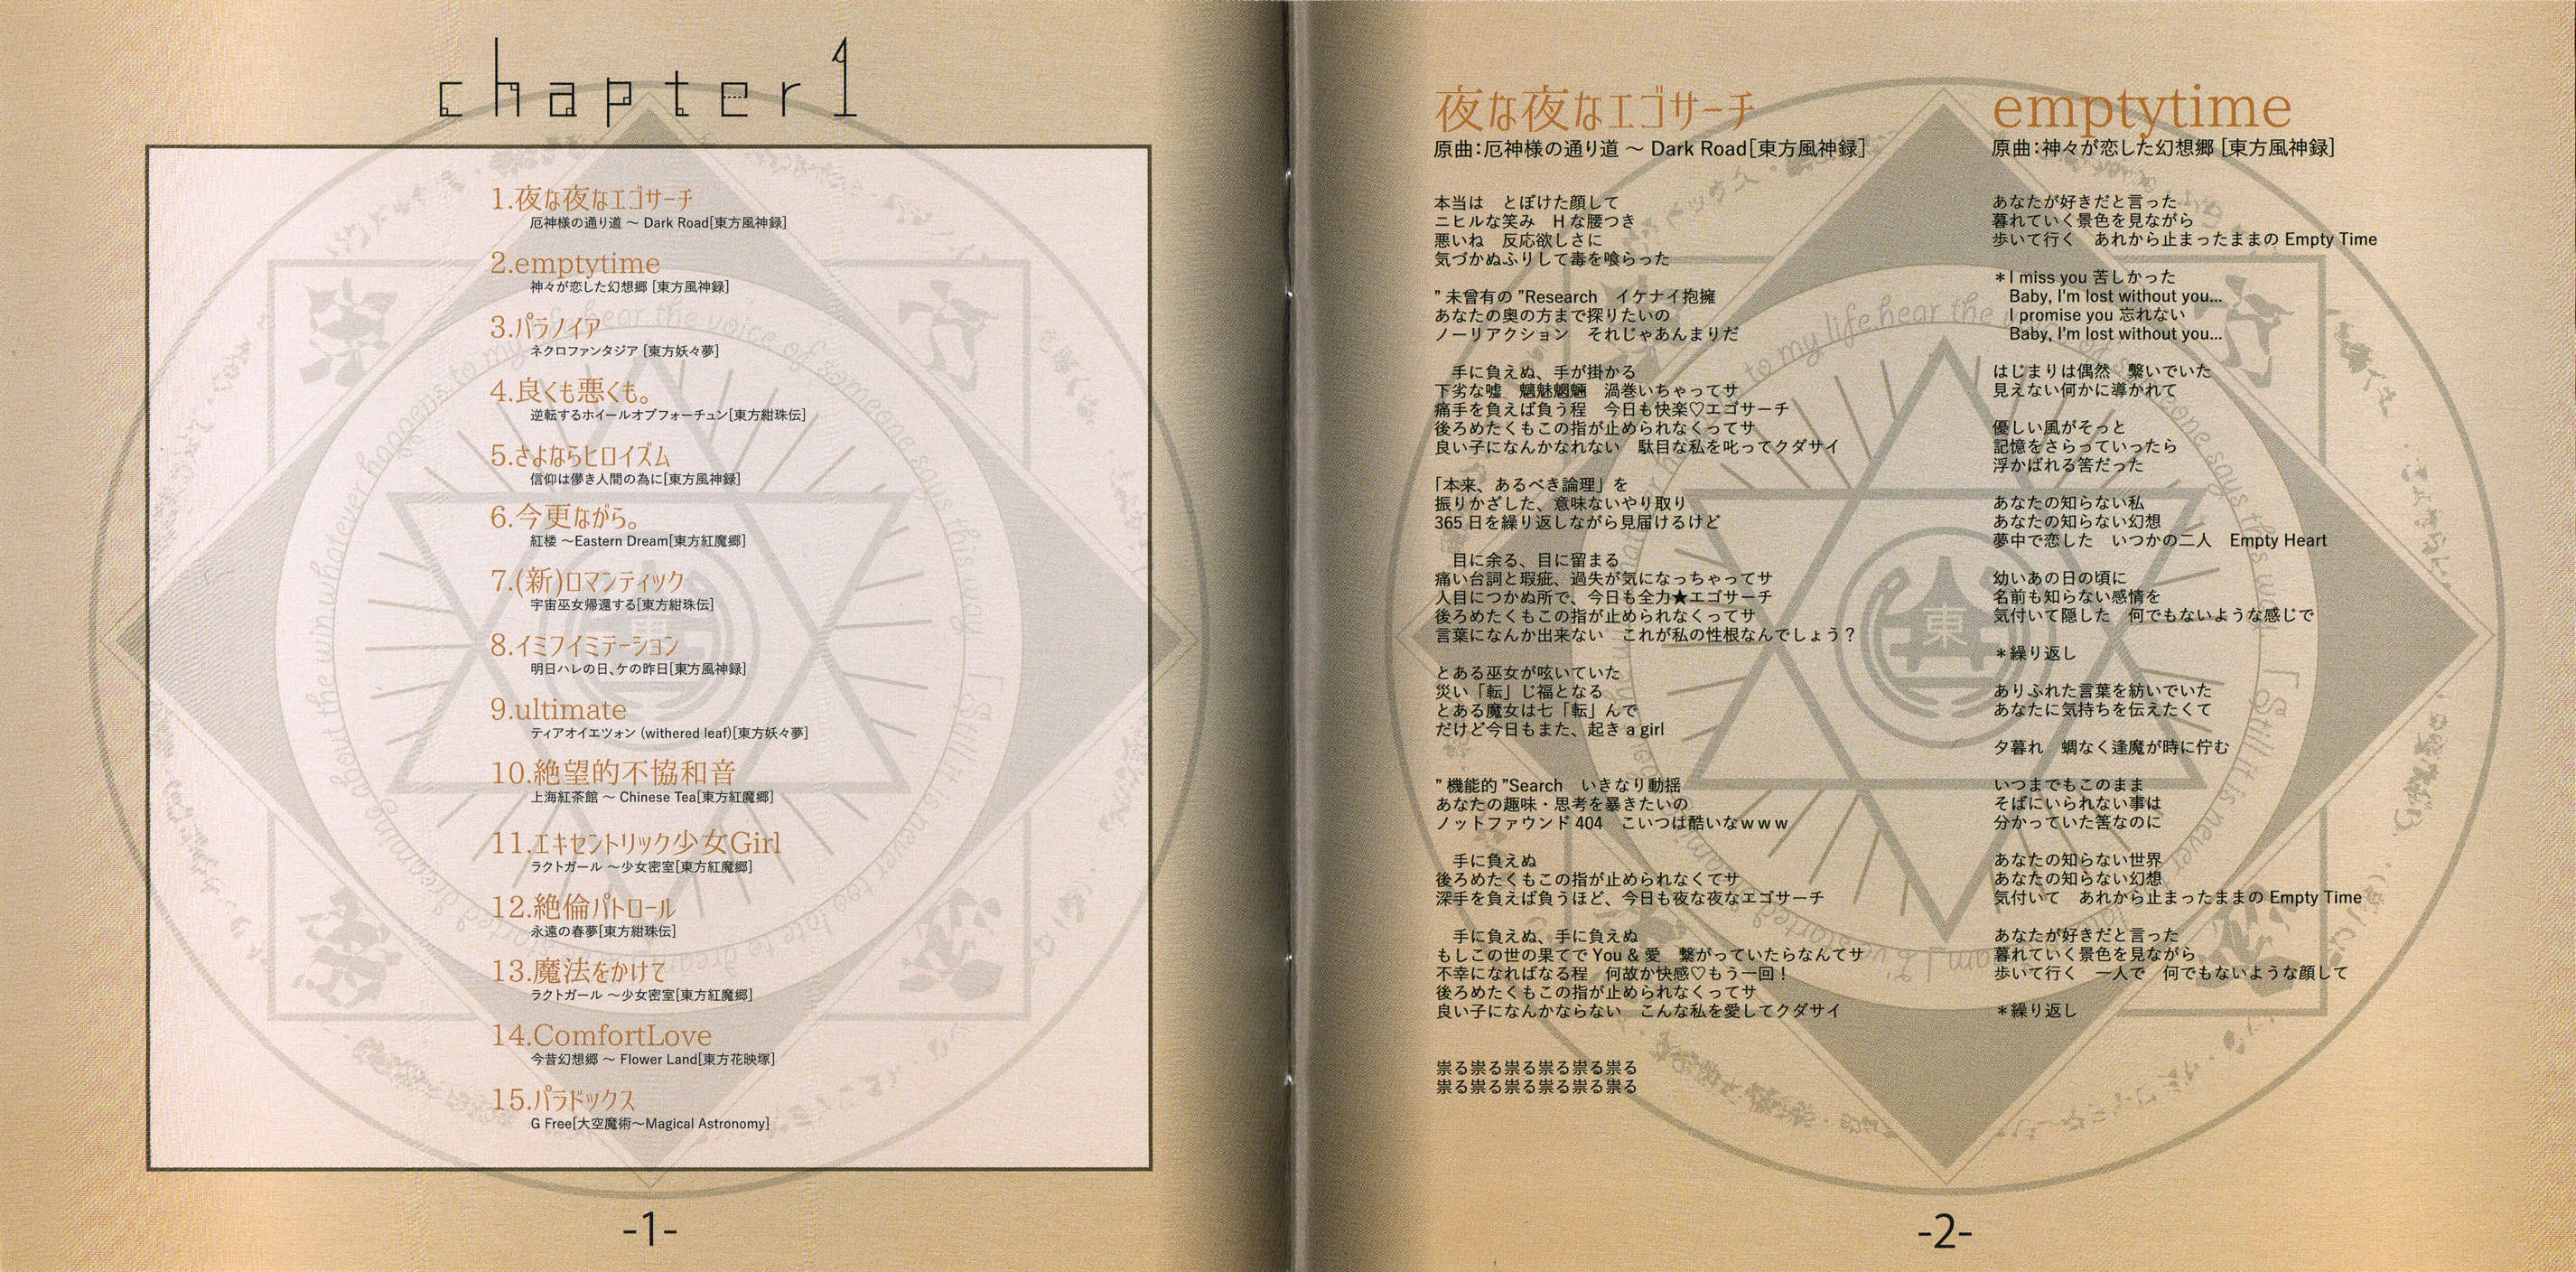 chapter1
1.夜な夜なエゴサーチ
厄神様の通り道 ～ Dark Road[東方風神録]
2.emptytime
神々が恋した幻想郷 [東方風神録]
3.パラノイア
ネクロファンタジア [東方妖々夢]
4.良くも悪くも。
逆転するホイールオブフォーチュン[東方紺珠伝]
5.さよならヒロイズム
信仰は儚き人間の為に[東方風神録]
6.今更ながら。
紅楼 ～Eastern Dream[東方紅魔郷]
7.(新)ロマンティック
宇宙巫女帰還する[東方紺珠伝]
8.イミフイミテーション
明日ハレの日、ケの昨日[東方風神録]
9.ultimate
ティアオイエツォン (withered leaf)[東方妖々夢]
10.絶望的不協和音
上海紅茶館 ～ Chinese Tea[東方紅魔郷]
11.エキセントリック少女Girl
ラクトガール ～少女密室[東方紅魔郷]
12.絶倫パトロール
永遠の春夢[東方紺珠伝]
13.魔法をかけて
ラクトガール ～少女密室[東方紅魔郷]
14.ComfortLove
今昔幻想郷 ～ Flower Land[東方花映塚]
15.パラドックス
G Free[大空魔術～Magical Astronomy]
-1-
夜な夜なエゴサーチ
原曲：厄神様の通り道 ～ Dark Road[東方風神録]
本当は　とぼけた顔して
ニヒルな笑み　Hな腰つき
悪いね　反応欲しさに
気づかぬふりして毒を喰らった
”未曾有の”Research　イケナイ抱擁
あなたの奥の方まで探りたいの
ノーリアクション　それじゃあんまりだ
手に負えぬ、手が掛かる
下劣な嘘　魑魅魍魎　渦巻いちゃってサ
痛手を負えば負う程　今日も快楽♡エゴサーチ
後ろめたくもこの指が止められなくってサ
良い子になんかなれない　駄目な私を叱ってクダサイ
「本来、あるべき論理」を
振りかざした、意味ないやり取り
365日を繰り返しながら見届けるけど
目に余る、目に留まる
痛い台詞と瑕疵、過失が気になっちゃってサ
人目につかぬ所で、今日も全力★エゴサーチ
後ろめたくもこの指が止められなくってサ
言葉になんか出来ない　これが私の性根なんでしょう？
とある巫女が呟いていた
災い「転」じ福となる
とある魔女は七「転」んで
だけど今日もまた、起き a girl
”機能的”Search　いきなり動揺
あなたの趣味・思考を暴きたいの
ノットファウンド404　こいつは酷いなｗｗｗ
手に負えぬ
後ろめたくもこの指が止められなくてサ
深手を負えば負うほど、今日も夜な夜なエゴサーチ
手に負えぬ、手に負えぬ
もしこの世の果てでYou & 愛　繋がっていたらなんてサ
不幸になればなる程　何故か快感♡もう一回！
後ろめたくもこの指が止められなくってサ
良い子になんかならない　こんな私を愛してクダサイ
祟る祟る祟る祟る祟る祟る
祟る祟る祟る祟る祟る祟る
emptytime
原曲：神々が恋した幻想郷 [東方風神録]
あなたが好きだと言った
暮れていく景色を見ながら
歩いて行く　あれから止まったままの Empty Time
＊I miss you 苦しかった
Baby, I'm lost without you...
I promise you 忘れない
Baby, I'm lost without you...
はじまりは偶然　繋いでいた
見えない何かに導かれて
優しい風がそっと
記憶をさらっていったら
浮かばれる筈だった
あなたの知らない私
あなたの知らない幻想
夢中で恋した　いつかの二人　Empty Heart
幼いあの日の頃に
名前も知らない感情を
気付いて隠した　何でもないような感じで
＊繰り返し
ありふれた言葉を紡いでいた
あなたに気持ちを伝えたくて
夕暮れ　蜩なく逢魔が時に佇む
いつまでもこのまま
そばにいられない事は
分かっていた筈なのに
あなたの知らない世界
あなたの知らない幻想
気付いて　あれから止まったままの Empty Time
あなたが好きだと言った
暮れていく景色を見ながら
歩いて行く　一人で　何でもないような顔して
＊繰り返し
東
-2-